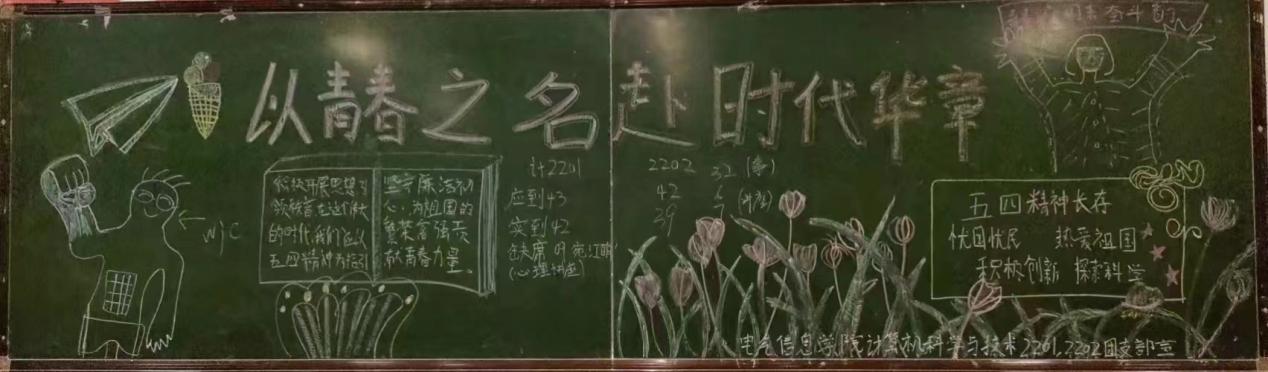 以青春之名赴时代华章
积极开展思想引
领教育在这个伟大
的时代,我们应以
五四精神为指引
坚守廉洁初
心,为祖国的
繁荣富强贡
献青春力量。
wjc
计2201
应到43
实到42
缺席
(心理讲座)
2202 32
42 6
39 7
五四精神长存
忧国忧民 热爱祖国
积极创新 探索科学
电气信息学院计算机科学与技术2201,2202团支部宣